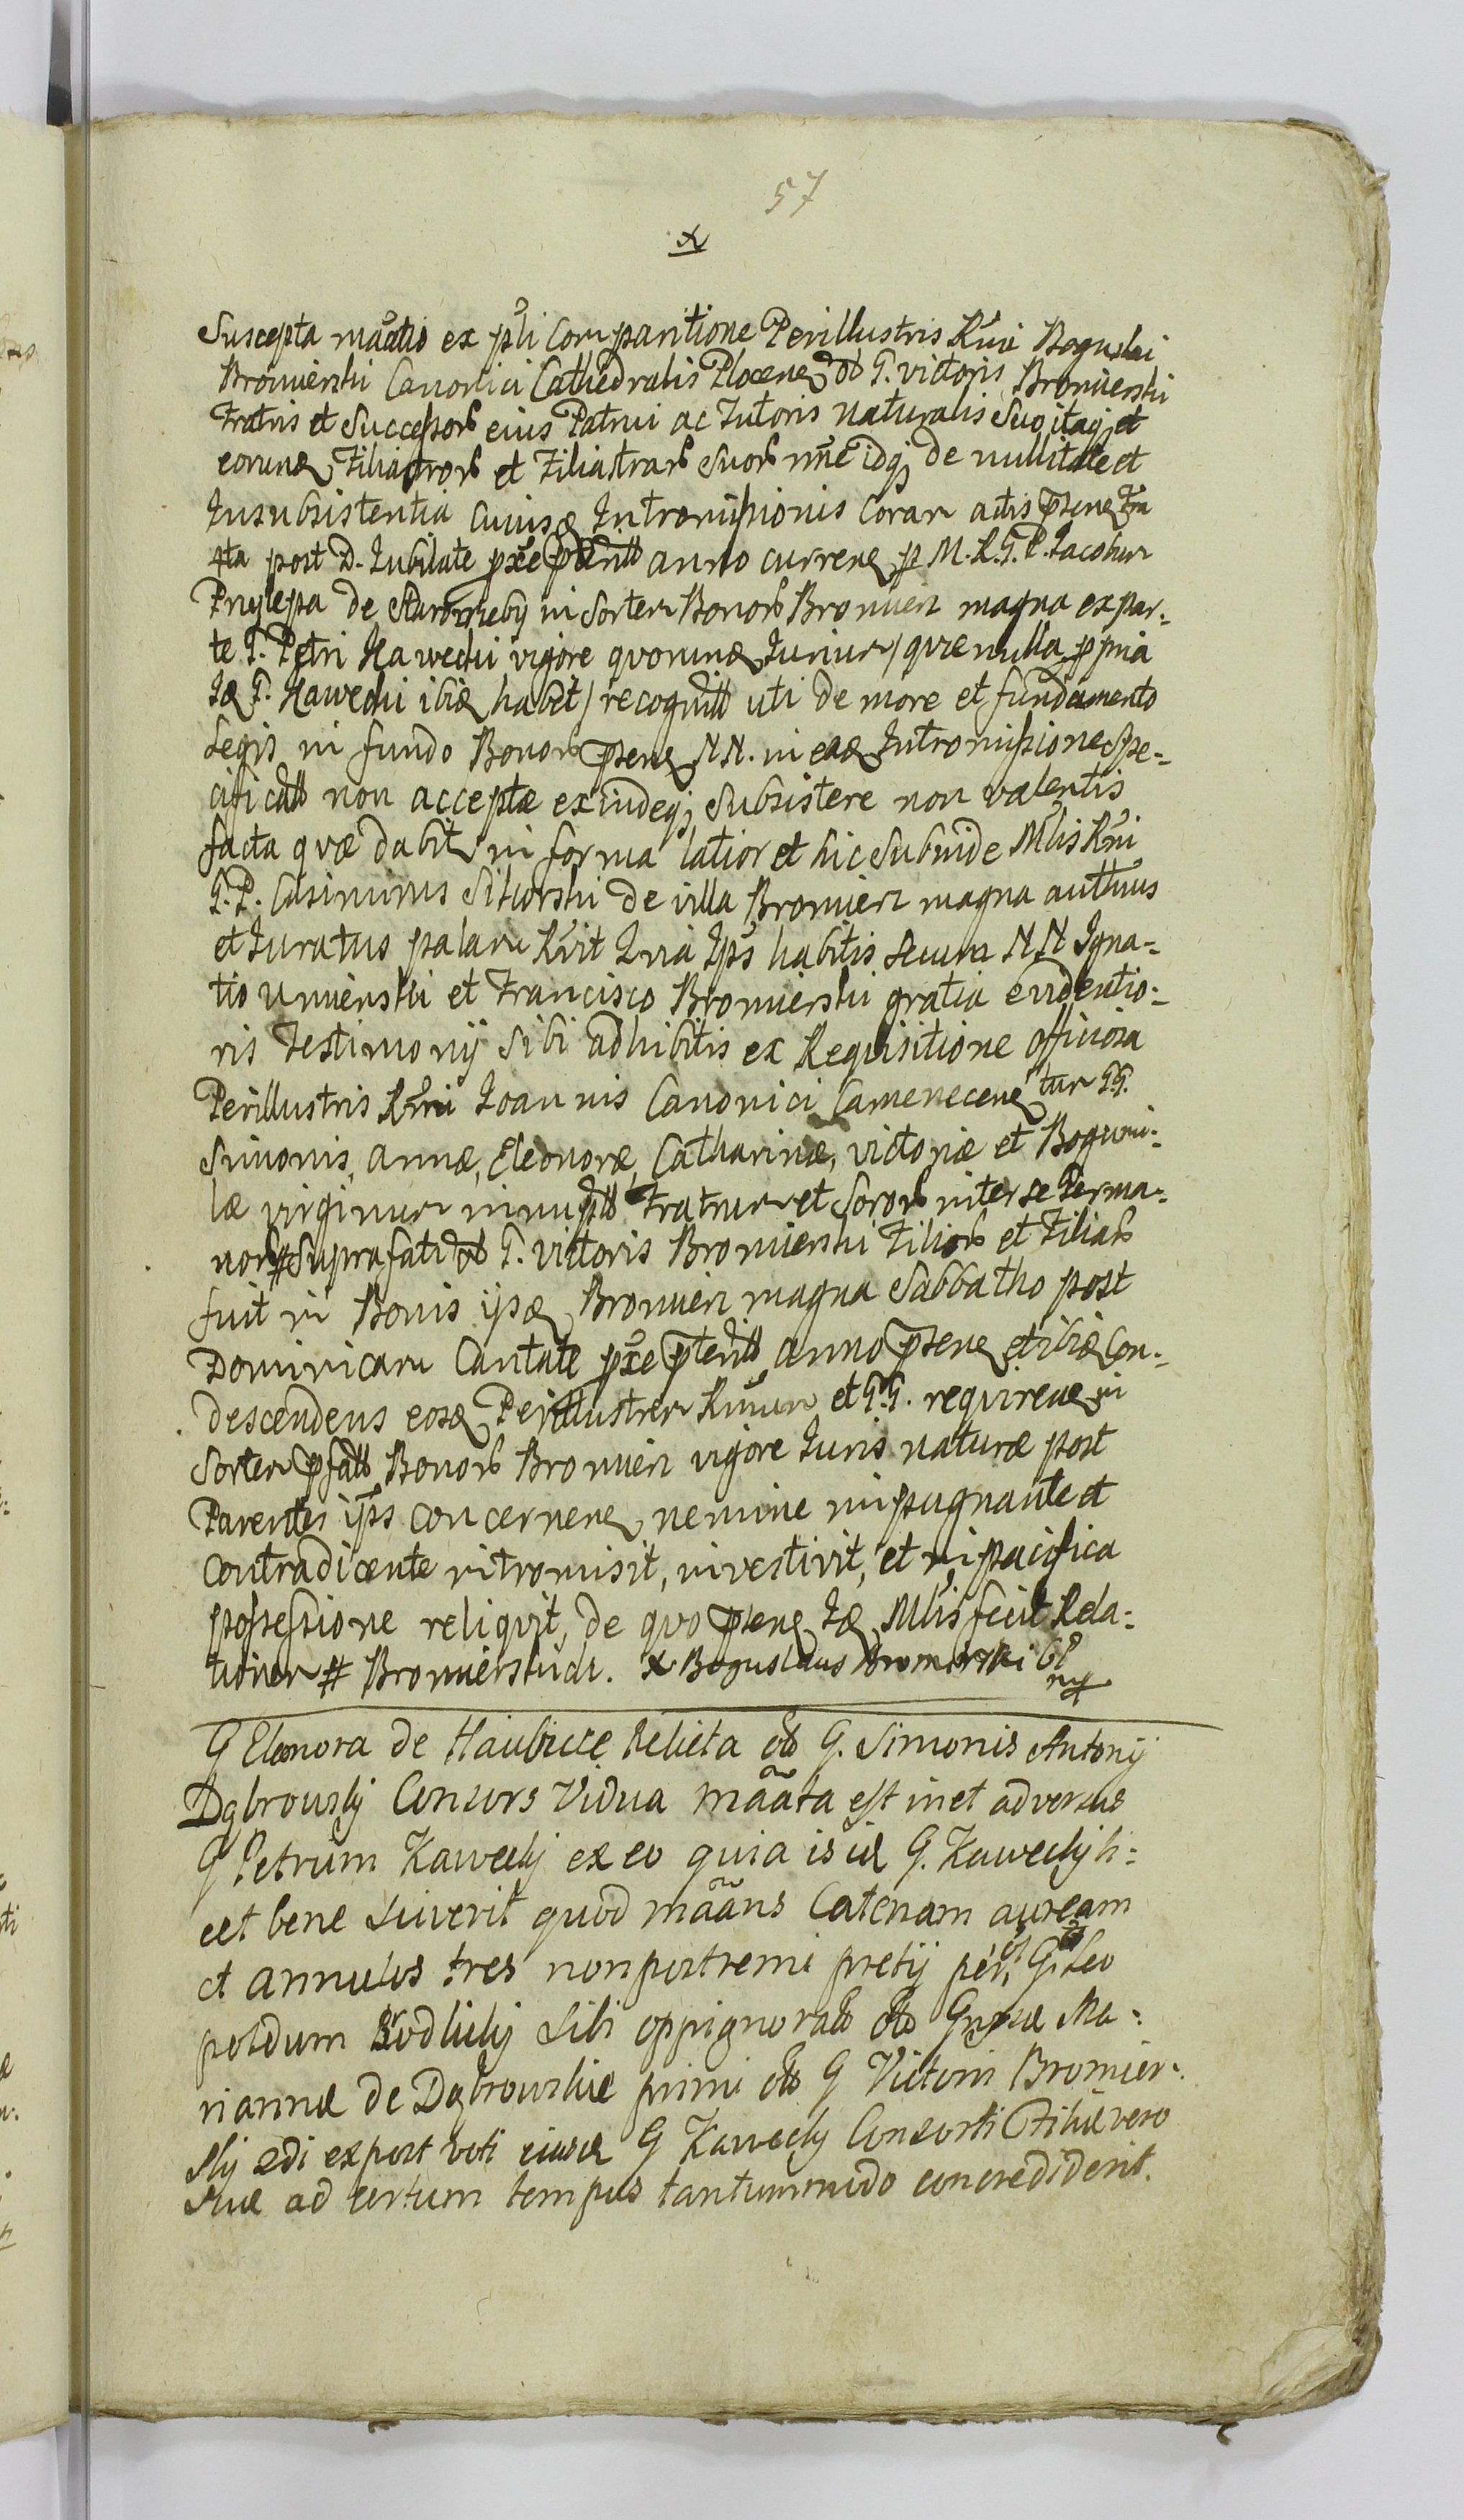 57
x
Suscepta mãatio ex pŕli Comparitione Perillustris Rm̃i Boguslai
Bromierski Canonici Cathedralis Plocenę ol̃ G. victoris Bromierski
Fratris et Successor̃ eius Patrui ac Tutoris naturalis Suo itaq; et
eorundę Filiastror̃ et Filiastrar̃ Suor̃ nr̃ñe idq; de nullitate et
Insubsistentia Cuiusdę Intromissionis Coram actis p̃senę Fria
4ta post D. Jubilate px̃e p̃terit̃ anno currenę p M. R. G. P. Jacobum
Przylepa de Starozreby in Sortem Bonor̃ Bromierz magna ex par-
te G. Petri Kawecki vigore quorundę Jurium / quæ nulla p̃pria
Idę G. Kawecki ibidę habet / recognit̃ uti de more et fundamento
Legis in fundo Bonor̃ p̃senę NN. in eadę Intromissione Spe-
cificat̃ non acceptæ exindeq; Subsistere non valentis
facta quæ dabitr in forma latior et hic Subinde Ml̃is Rm̃i
G. P. Casimirus Sikorski de villa Bromierz magna auth̃us
et Juratus palam Rr̃it Qria Ip̃s habitis Secum NN Igna-
tio Umierski et Francisco Bromierski gratia evidentio-
ris Testimonij Sibi adhibitis ex Requisitione officiosa
Perillustris Rm̃i Joannis Canonici Camenecenę tum GG.
Simonis, annæ, Eleonoræ, Catharinæ, victoriæ et Bogumi-
læ virginum innupt̃ Fratrum et Soror̃ inter se Germa-
nor̃ # Suprafati ol̃ G. victoris Bromierski Filior̃ et Filiar̃
fuit in Bonis ipsę Bromierz magna Sabbatho post
Dominicam Cantate px̃e p̃terit̃ anno p̃senę et ibidę Con-
descendens eosdę Perillustrem Rm̃um et GG. requirenę in
Sortem p̃fat̃ Bonor̃ Bromierz vigore Juris naturæ post
Parentes ip̃s concernenę nemine impugnante et
contradicente intromisit, investivit, et in pacifica
possessione reliquit, de quo p̃senę Idę Ml̃is fecit Rela-
tionem # Bromierskich. x Boguslaus Bromirski CP
mp
G Eleonora de Haubicce Relicta ol̃ G. Simonis Antonij
Dąbrowsky Consors Vidua mãata est inet adversus
G Petrum Kawecky ex eo quia is idę G. Kawecky li-
cet bene Sciverit quod mãans Catenam auream
et annulos tres non postremi pretij G. Leo
poldum Siodlicky Sibi oppignorat̃ ol̃ Grosæ Ma-
riannæ de Dąbrowskie primi ol̃ G Victori Bromier-
sky 2di ex post voti eiusdę G Kawecky Consorti Filiæ vero
Suæ ad certum tempus tantummodo concrediderit.